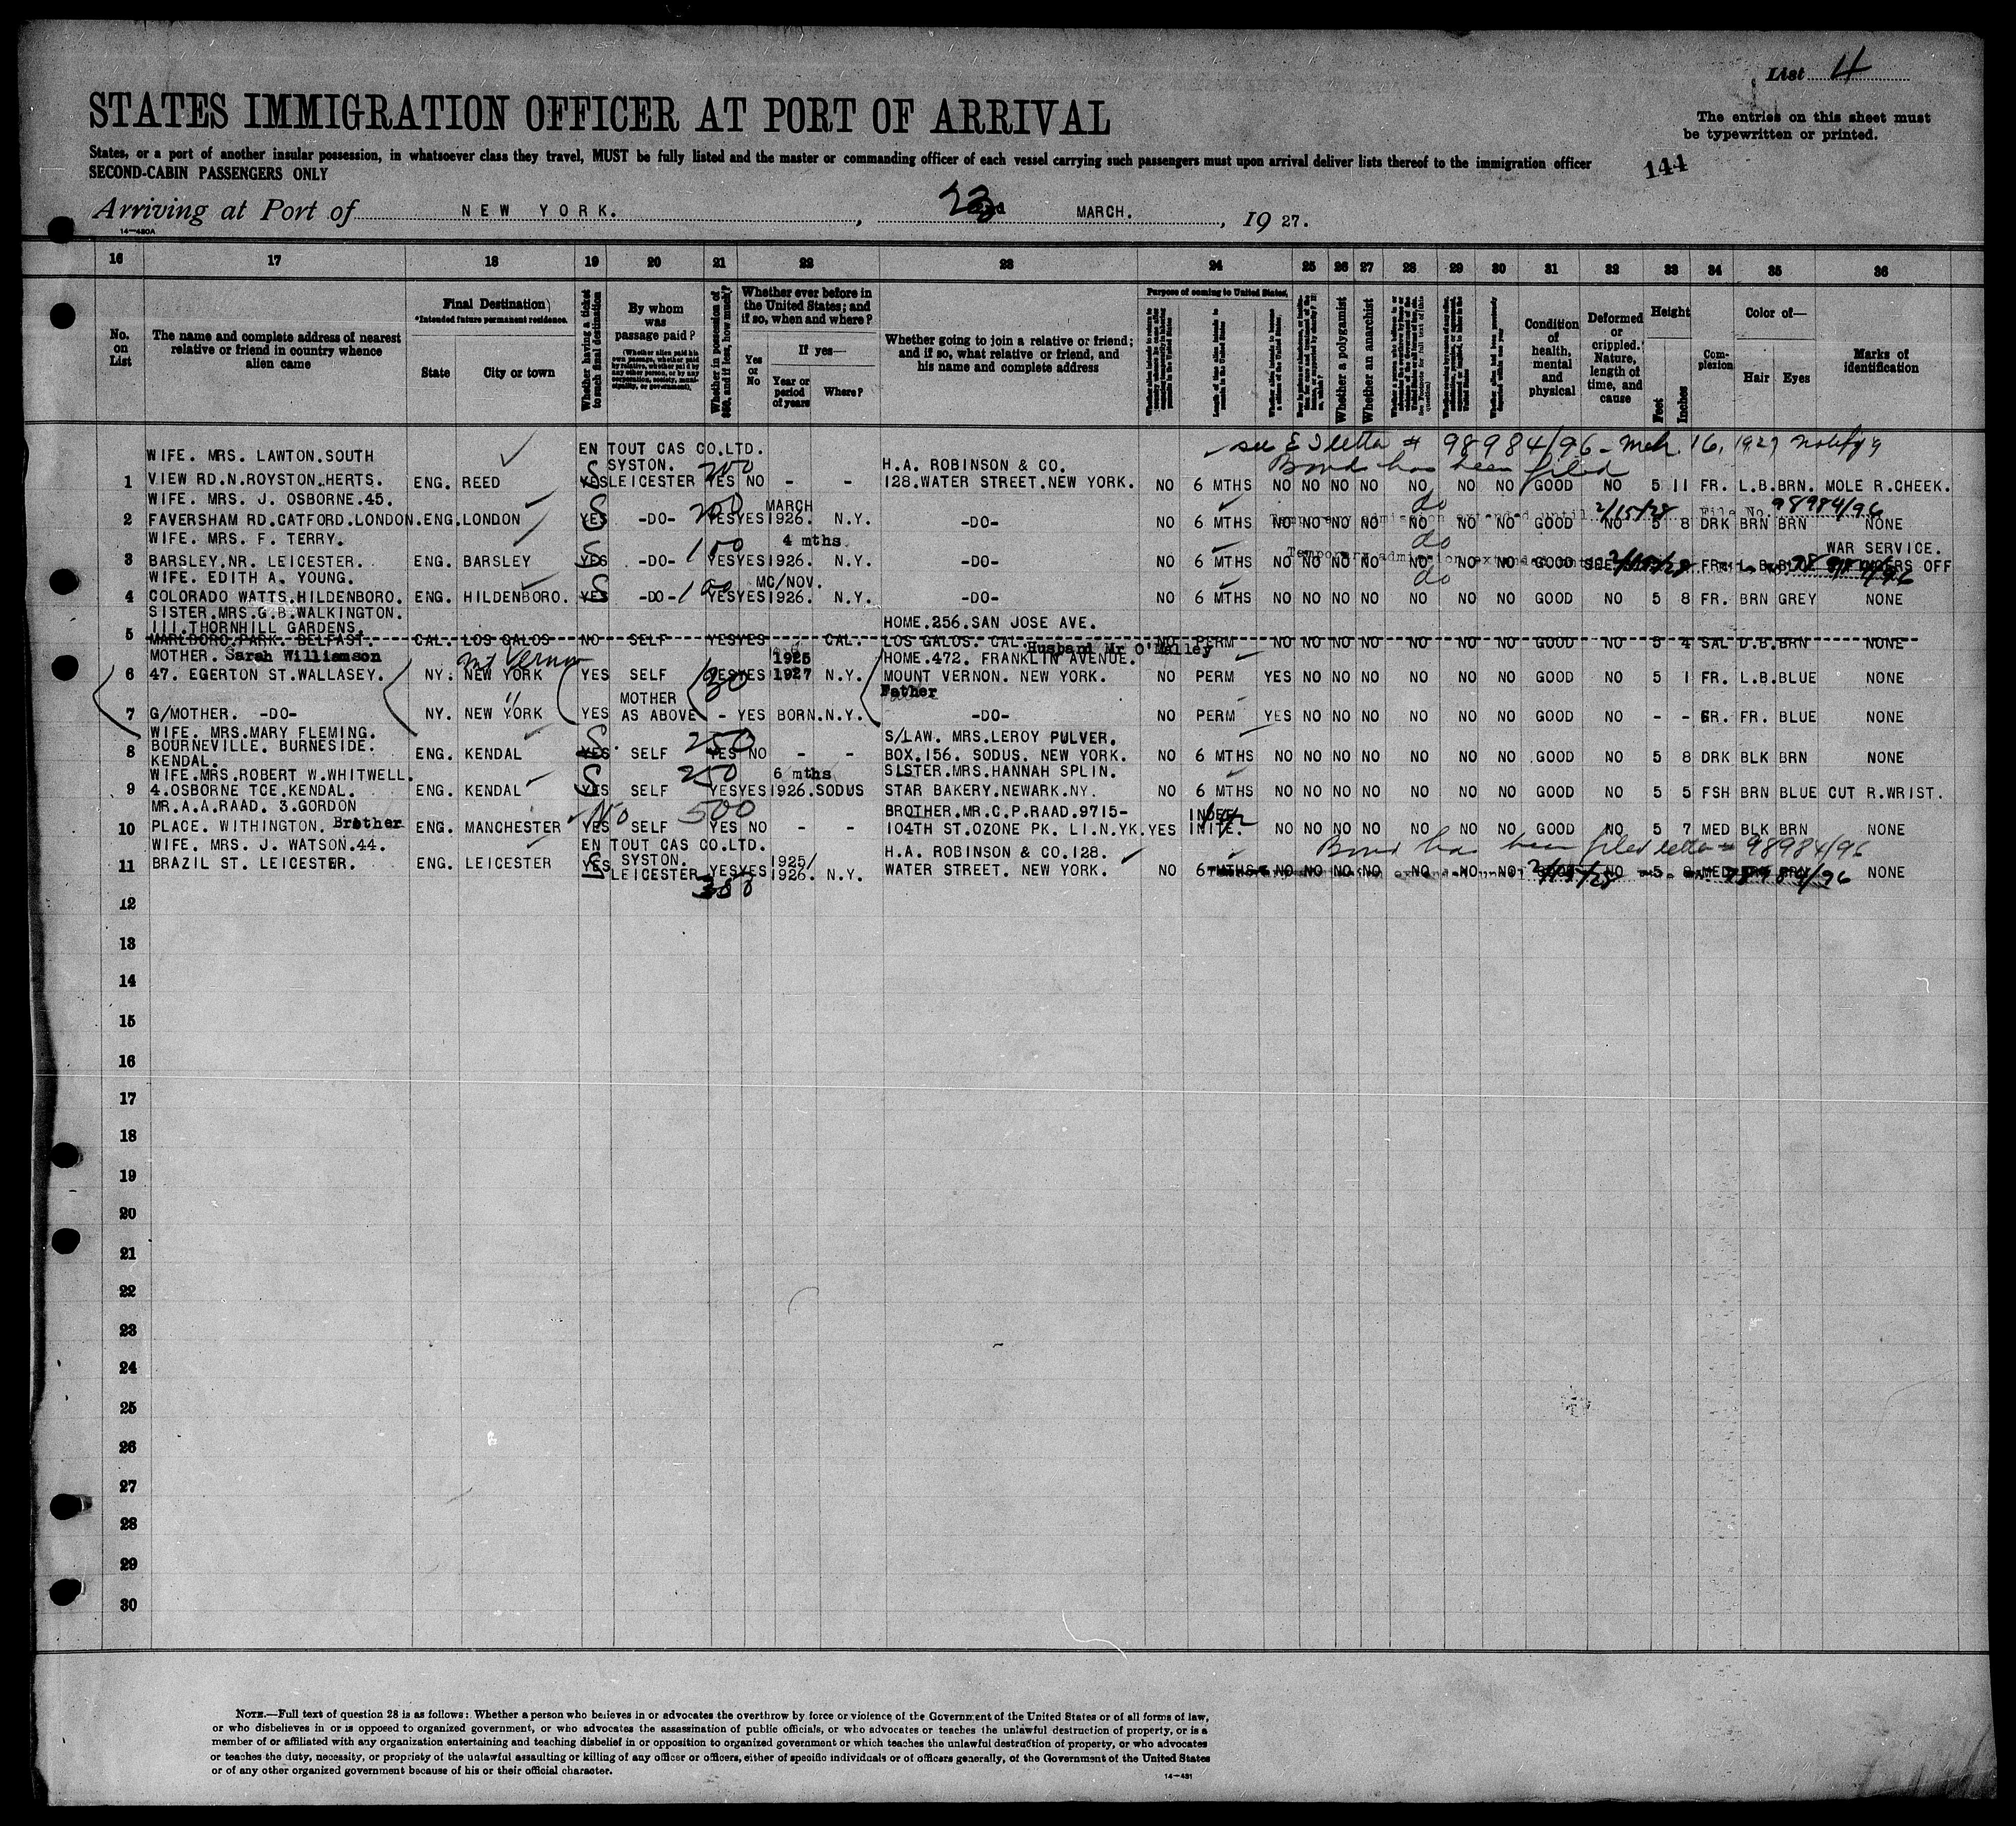 List 4
STATES IMMIGRATION OFFICER AT PORT OF ARRIVAL
The entries on this sheet must
be typewritten or printed.
States, or a port of another insular possession, in whatsoever class they travel, MUST be fully listed and the master or commanding officer of each vessel carrying such passengers must upon arrival deliver lists thereof to the immigration officer
SECOND-CABIN PASSENGERS ONLY
144
Arriving at Port of NEW YORK. , 23 MARCH. , 19 27.
14-480A
16 17 18 19 20 21 22 23 24 25 26 27 28 29 30 31 32 33 34 35 36
No. on List
The name and complete address of nearest relative or friend in country whence alien came
Final Destination
*Intended future permanent residence.
State City or town
Whether having a ticket to such final destination
By whom was passage paid?
(Whether alien paid his own passage, whether paid by relative, whether paid by any other person, or by any corporation, society, municipality, or government.)
Whether in possession of $50, and if less, how much?
Whether ever before in the United States; and if so, when and where?
Yes or No
If yes—
Year or period of years
Where?
Whether going to join a relative or friend; and if so, what relative or friend, and his name and complete address
Purpose of coming to United States.
Length of time alien intends to remain in the United States
Whether alien intends to become a citizen of the United States.
Whether a polygamist
Whether an anarchist
Condition of health, mental and physical
Deformed or crippled. Nature, length of time, and cause
Height
Feet Inches
Complexion
Color of—
Hair Eyes
Marks of identification
see letter # 98984/96 - Mch. 16, 1927
Bond has been filed
WIFE. MRS. LAWTON.SOUTH EN TOUT CAS CO.LTD.
SYSTON. 200 H.A. ROBINSON & CO.
1 VIEW RD.N.ROYSTON.HERTS. ENG. REED YES LEICESTER YES NO - - 128.WATER STREET.NEW YORK. NO 6 MTHS NO NO NO NO NO NO NO GOOD NO 5 11 FR. L.B. BRN. MOLE R.CHEEK.
WIFE. MRS. J. OSBORNE.45. 200 MARCH do 2/15/28 98984/96
2 FAVERSHAM RD.CATFORD.LONDON.ENG.LONDON YES -DO- YES YES 1926. N.Y. -DO- NO 6 MTHS NO NO NO NO NO NO NO GOOD NO 5 8 DRK BRN BRN NONE
Temporary admission extended until File No.
WIFE. MRS. F. TERRY. 150 4 mths do WAR SERVICE.
3 BARSLEY.NR. LEICESTER. ENG. BARSLEY YES -DO- YES YES 1926. N.Y. -DO- NO 6 MTHS NO NO NO NO NO NO NO GOOD SEE FR. L.B. BLUE FINGERS OFF
Temporary admission
WIFE. EDITH A. YOUNG. 100 MC/NOV. do
4 COLORADO WATTS.HILDENBORO. ENG. HILDENBORO. YES -DO- YES YES 1926. N.Y. -DO- NO 6 MTHS NO NO NO NO NO NO NO GOOD NO 5 8 FR. BRN GREY NONE
SISTER.MRS.G.B.WALKINGTON.
III.THORNHILL GARDENS. HOME.256.SAN JOSE AVE.
5 MARLBORO PARK. BELFAST. CAL. LOS GALOS NO SELF YES YES CAL. LOS GALOS. CAL. NO PERM NO NO NO NO NO NO GOOD NO 5 4 SAL D.B. BRN NONE
MOTHER. Sarah Williamson Mt Vernon 1925 Husband Mr O'Malley
HOME.472. FRANKLIN AVENUE.
6 47. EGERTON ST.WALLASEY. NY. NEW YORK YES SELF 30 YES YES 1927 N.Y. MOUNT VERNON. NEW YORK. NO PERM YES NO NO NO NO NO NO GOOD NO 5 1 FR. L.B. BLUE NONE
" MOTHER Father
7 G/MOTHER. -DO- NY. NEW YORK YES AS ABOVE - YES BORN.N.Y. -DO- NO PERM YES NO NO NO NO NO NO GOOD NO - - FR. FR. BLUE NONE
WIFE. MRS.MARY FLEMING. S/LAW. MRS.LEROY PULVER.
8 BOURNEVILLE. BURNESIDE. KENDAL. ENG. KENDAL YES SELF 250 YES NO - - BOX.156. SODUS. NEW YORK. NO 6 MTHS NO NO NO NO NO NO NO GOOD NO 5 8 DRK BLK BRN NONE
WIFE.MRS.ROBERT W.WHITWELL. 250 6 mths SISTER.MRS.HANNAH SPLIN.
9 4.OSBORNE TCE.KENDAL. ENG. KENDAL YES SELF YES YES 1926.SODUS STAR BAKERY.NEWARK.NY. NO 6 MTHS NO NO NO NO NO NO NO GOOD NO 5 5 FSH BRN BLUE CUT R.WRIST.
MR.A.A.RAAD. 3.GORDON No 500 BROTHER.MR.C.P.RAAD.9715-
10 PLACE. WITHINGTON. Brother ENG. MANCHESTER YES SELF YES NO - - 104TH ST.OZONE PK. LI.N.YK. YES NO NO NO NO NO NO NO GOOD NO 5 7 MED BLK BRN NONE
WIFE. MRS. J. WATSON.44. EN TOUT CAS CO.LTD. Bond has been filed letter 98984/96
SYSTON. 1925/ H.A. ROBINSON & CO.128.
11 BRAZIL ST. LEICESTER. ENG. LEICESTER YES LEICESTER YES YES 1926. N.Y. WATER STREET. NEW YORK. NO 6 MTHS NO NO NO NO NO NO NO GOOD NO 5 MED BRN NONE
350 98984/96
12
13
14
15
16
17
18
19
20
21
22
23
24
25
26
27
28
29
30
NOTE.—Full text of question 28 is as follows: Whether a person who believes in or advocates the overthrow by force or violence of the Government of the United States or of all forms of law,
or who disbelieves in or is opposed to organized government, or who advocates the assassination of public officials, or who advocates or teaches the unlawful destruction of property, or is a
member of or affiliated with any organization entertaining and teaching disbelief in or opposition to organized government or which teaches the unlawful destruction of property, or who advocates
or teaches the duty, necessity, or propriety of the unlawful assaulting or killing of any officer or officers, either of specific individuals or of officers generally, of the Government of the United States
or of any other organized government because of his or their official character.
14-481